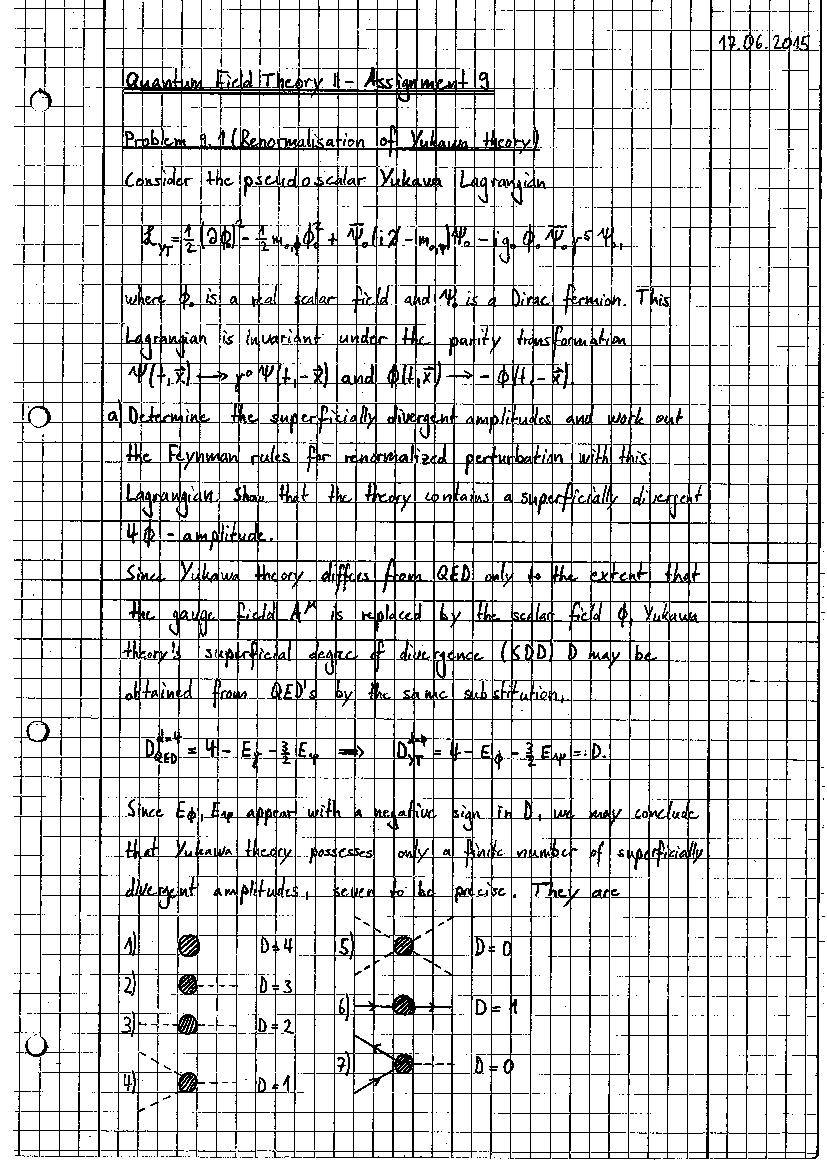 17.06.2015
Quantum Field Theory II - Assignment 9
Problem 9.1 (Renormalisation of Yukawa theory)
Consider the pseudoscalar Yukawa Lagrangian
ℒ_YT = 1/2 (∂ϕ₀)² - 1/2 m₀,ϕ ϕ₀² + Ψ̄₀ (i∂̸ - m₀,Ψ) Ψ₀ - i g₀ ϕ₀ Ψ̄₀ γ⁵ Ψ₀,
where ϕ₀ is a real scalar field and Ψ₀ is a Dirac fermion. This
Lagrangian is invariant under the parity transformation
Ψ(t,x⃗) ⟶ γ⁰ Ψ(t,-x⃗) and ϕ(t,x⃗) ⟶ -ϕ(t,-x⃗).
a) Determine the superficially divergent amplitudes and work out
the Feynman rules for renormalized perturbation with this
Lagrangian. Show that the theory contains a superficially divergent
4ϕ - amplitude.
Since Yukawa theory differs from QED only to the extent that
the gauge field A^μ is replaced by the scalar field ϕ, Yukawa
theory's superficial degree of divergence (SDD) D may be
obtained from QED's by the same substitution,
D_QED^{d=4} = 4 - E_γ - 3/2 E_Ψ ⟹ D_YT^{d=4} = 4 - E_ϕ - 3/2 E_Ψ =: D.
Since E_ϕ, E_Ψ appear with a negative sign in D, we may conclude
that Yukawa theory possesses only a finite number of superficially
divergent amplitudes, seven to be precise. They are
1) D=4
2) D=3
3) D=2
4) D=1
5) D=0
6) D=1
7) D=0